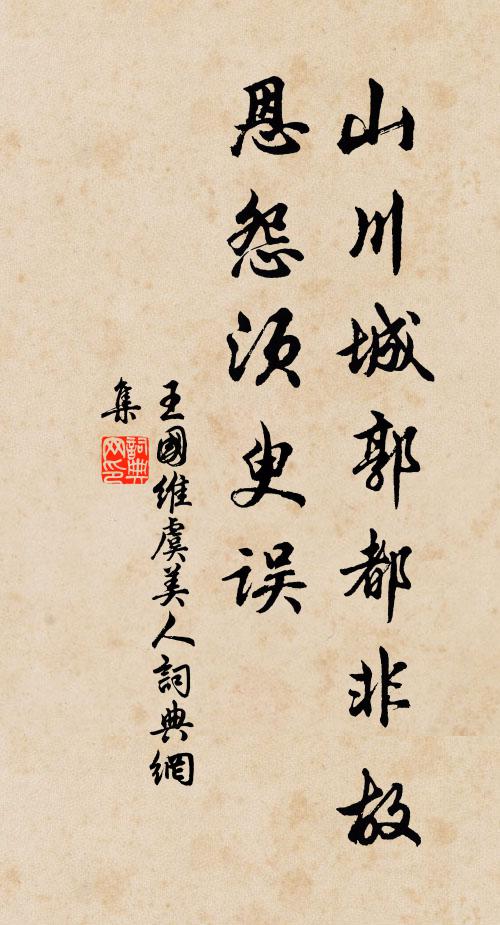 山川城郭都非故
恩怨须臾误
王國維虞美人詞典網
集
詞典
网印